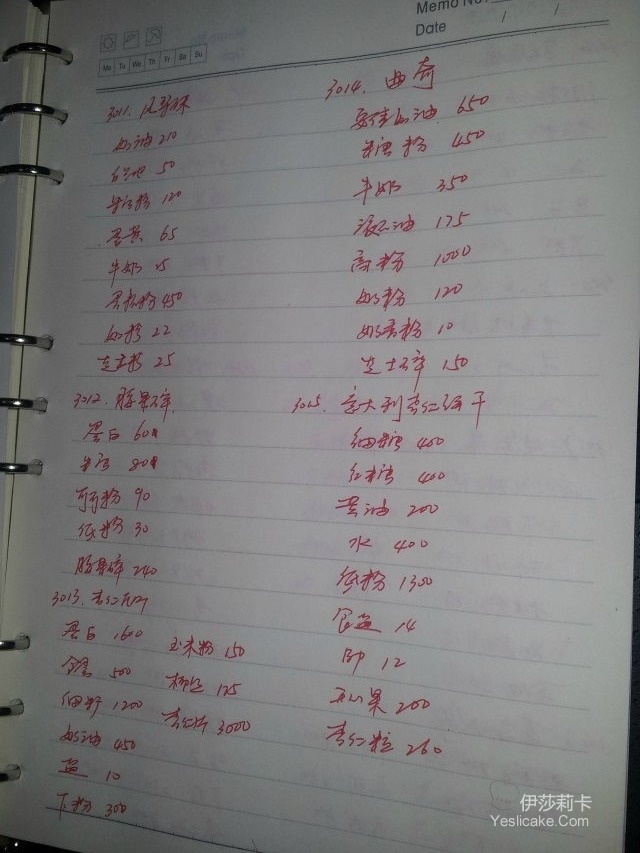 Memo No.
Date / /
Mo Tu We Th Fr Sa Su
3011.
奶油 210
50
糖粉 120
蛋黄 65
牛奶 25
450
奶粉 22
芝士粉 25
3012. 腰果碎
蛋白 600
米唐 800
可可粉 90
低粉 30
腰果碎 240
3013. 杏仁瓦片
蛋白 1600
全蛋 500
细糖 1200
奶油 450
盐 10
下粉 300
玉米粉 150
椰丝 125
杏仁片 3000
3014. 曲奇
安佳奶油 650
米唐粉 450
牛奶 350
液态油 175
高粉 1000
奶粉 120
奶香粉 10
芝士碎 150
3015. 意大利杏仁饼干
细糖 400
红糖 400
黄油 200
水 400
低粉 1300
食盐 14
BP 12
开心果 200
杏仁粒 260
伊莎莉卡
Yeslicake.Com